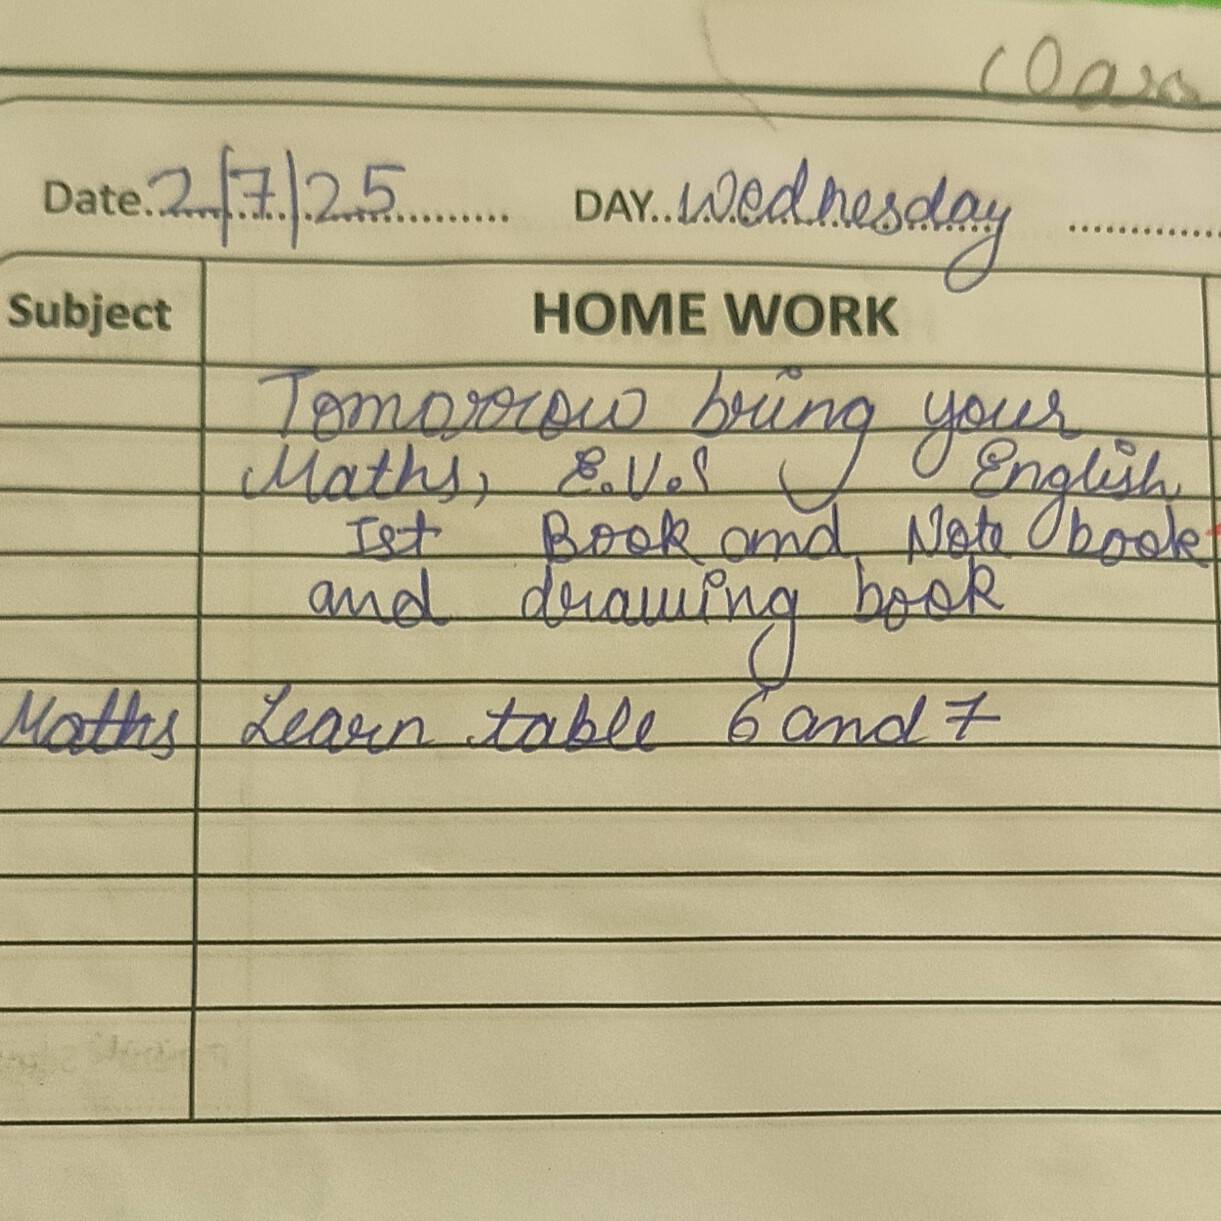 Date. 2/7/25 DAY.. Wednesday
Subject HOME WORK
Tomorrow bring your
Maths, E.V.S English
Ist Book and Note book
and drawing book
Maths Learn table 6 and 7